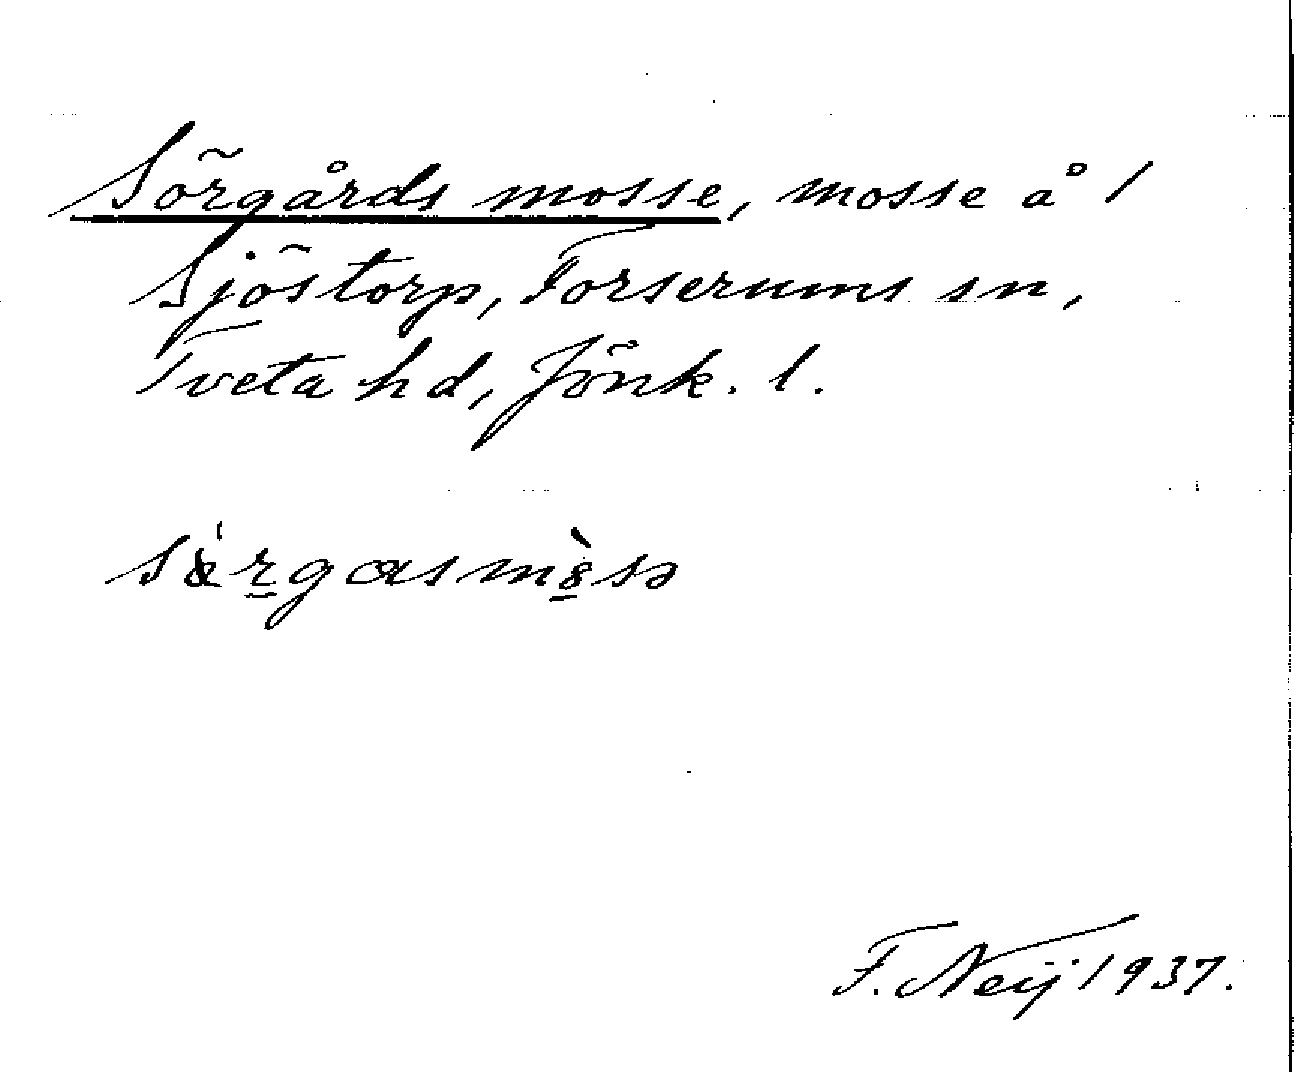 Sörgårds mosse, mosse å 1
Sjöstorp, Forserums sn,
Tveta hd, Jönk. l.
F. Neij 1937.